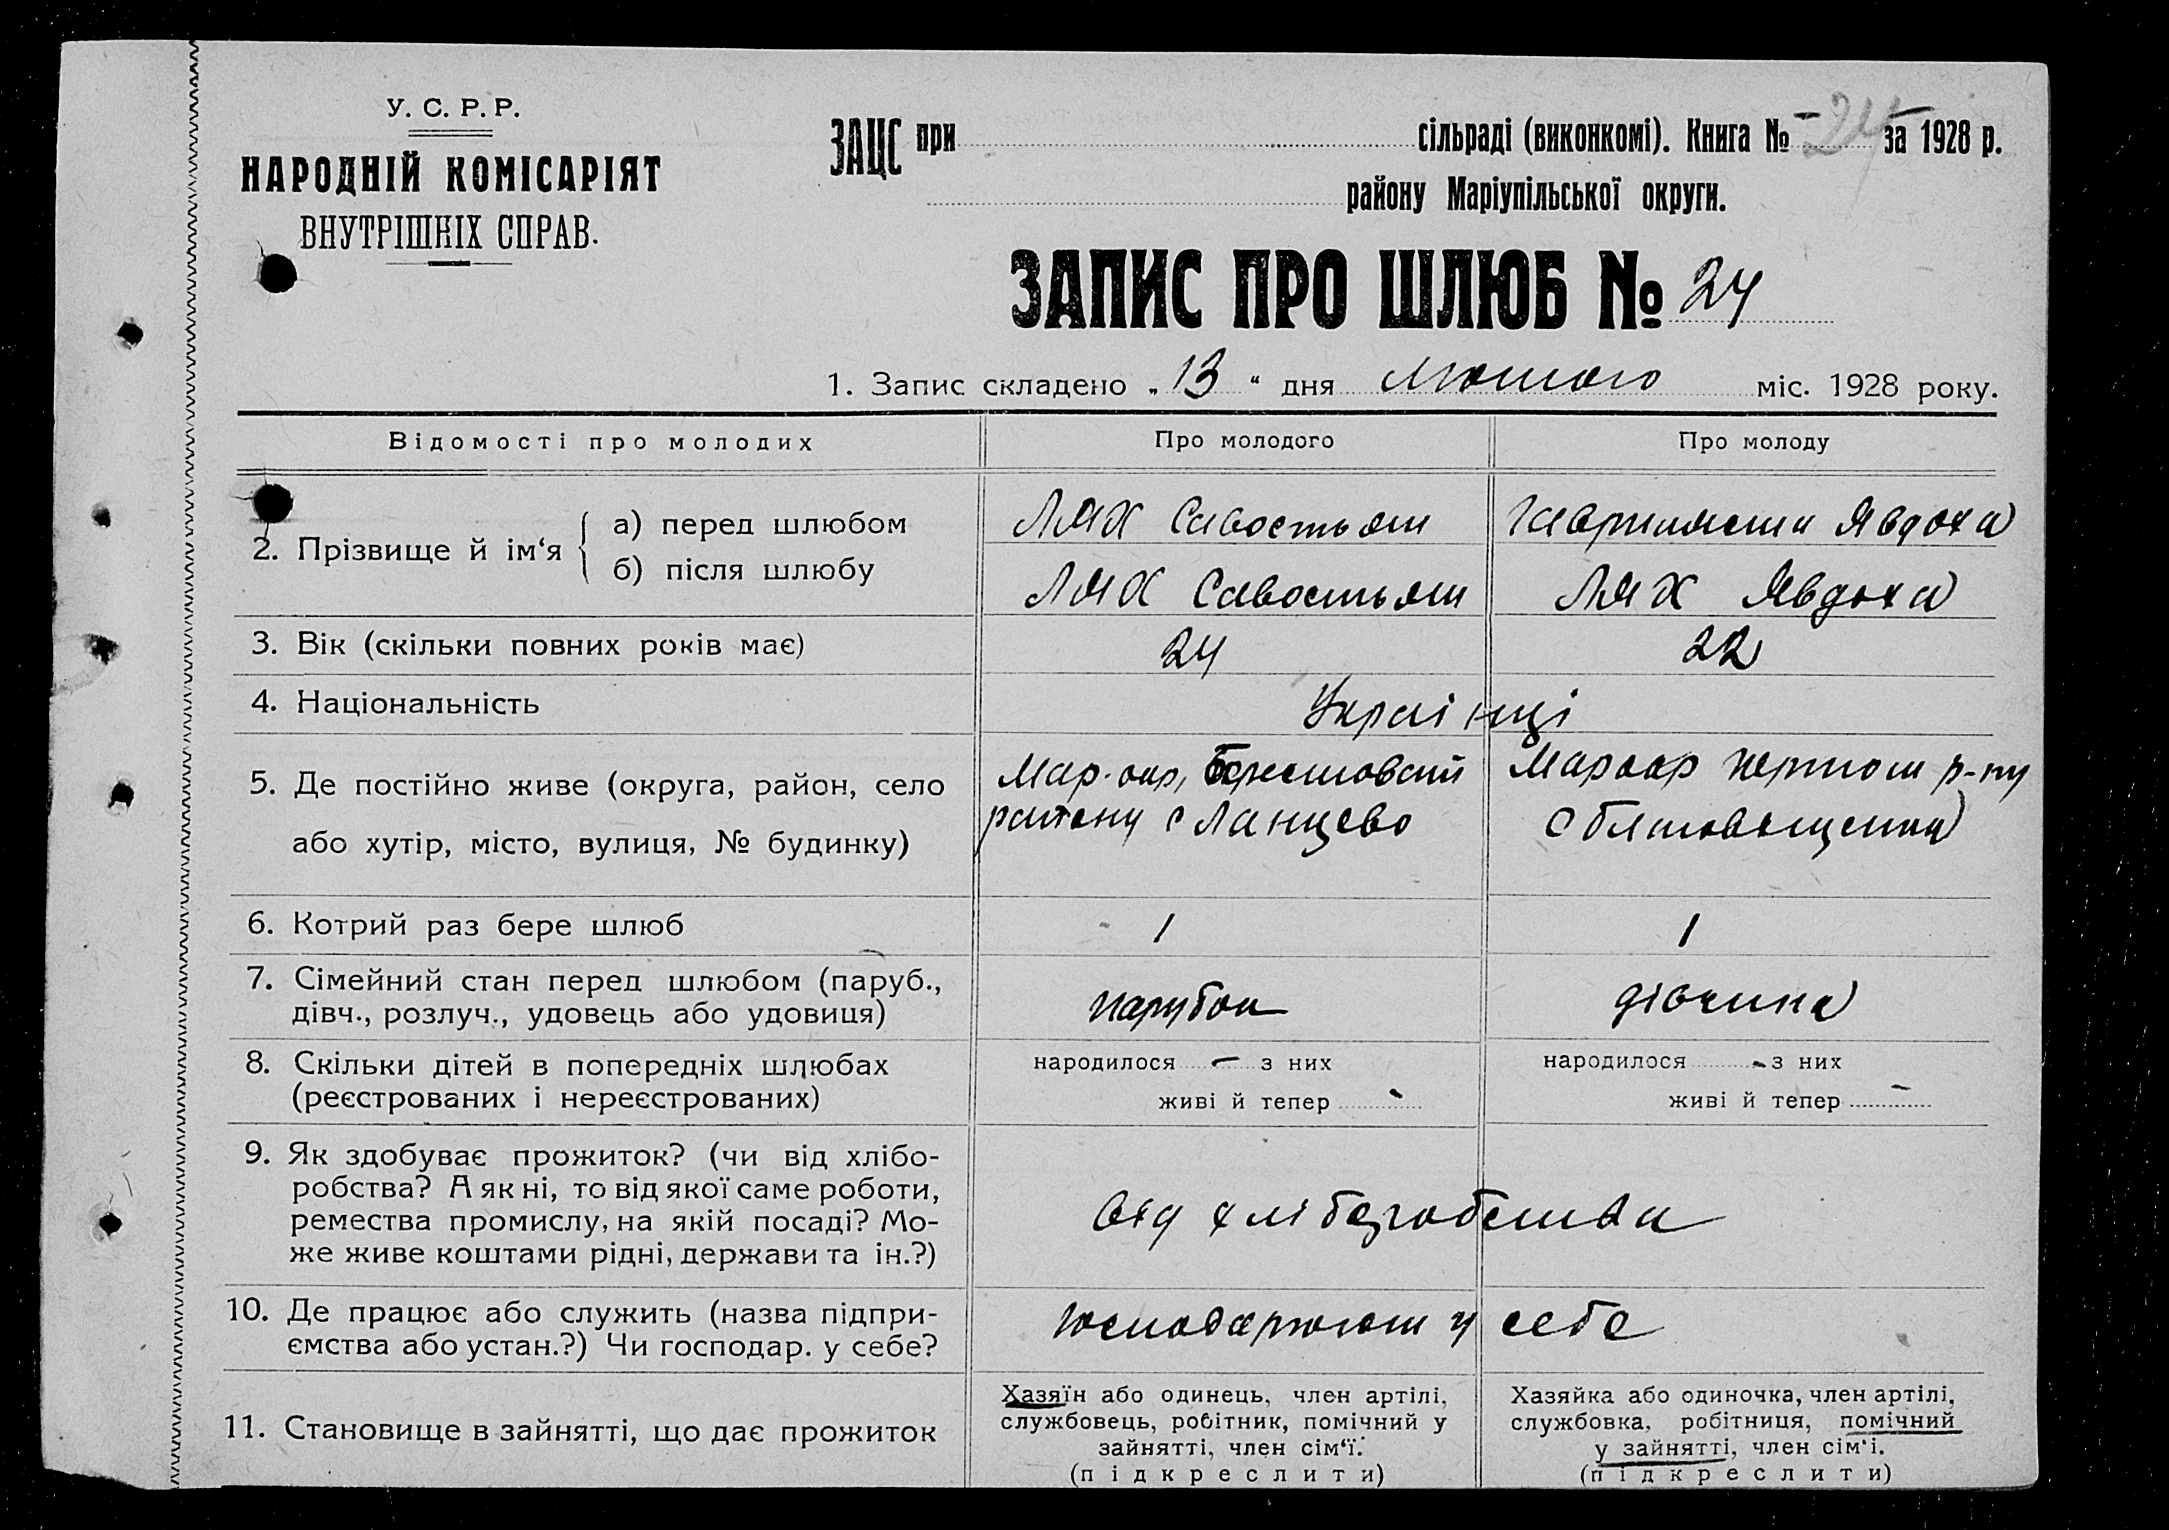 У. С. Р. Р.
НАРОДНІЙ КОМІСАРІЯТ
ВНУТРІШНІХ СПРАВ.
ЗАЦС при сільраді (виконкомі). Книга № 24 за 1928 р.
району Маріупільської округи.
ЗАПИС ПРО ШЛЮБ № 24
1. Запис складено „ 13 “ дня лютого міс. 1928 року.
Відомості про молодих Про молодого Про молоду
2. Прізвище й ім‘я
а) перед шлюбом Лях Савостьян Явдоха
б) після шлюбу Лях Савостьян Лях Явдоха
3. Вік (скільки повних років має) 24 22
4. Національність Українці
5. Де постійно живе (округа, район, село
або хутір, місто, вулиця, № будинку)
Мар. окр,
району с Ланцево
р-ну
с
6. Котрий раз бере шлюб 1 1
7. Сімейний стан перед шлюбом (паруб.,
дівч., розлуч., удовець або удовиця)
парубок дівчина
8. Скільки дітей в попередніх шлюбах
(реєстрованих і нереєстрованих)
народилося – з них
живі й тепер -
народилося - з них
живі й тепер –
9. Як здобуває прожиток? (чи від хлібо-
робства? А як ні, то від якої саме роботи,
ремества промислу, на якій посаді? Мо-
же живе коштами рідні, держави та ін.?)
від хліборобства
10. Де працює або служить (назва підпри-
ємства або устан.?) Чи господар. у себе?
господарюють у себе
11. Становище в зайнятті, що дає прожиток
Хазяїн або одинець, член артілі,
службовець, робітник, помічний у
зайнятті, член сім‘ї.
(підкреслити)
Хазяйка або одиночка, член артілі,
службовка, робітниця, помічний
у зайнятті, член сім‘і.
(підкреслити)